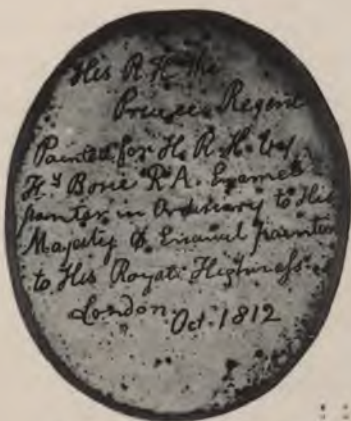 His R H the
Prince Regent
Painted for H. R. H. by
Hy Bone R A. Enamel
painter in Ordinary to His
Majesty & Enamel painter
to His Royal Highness
London Oct. 1812